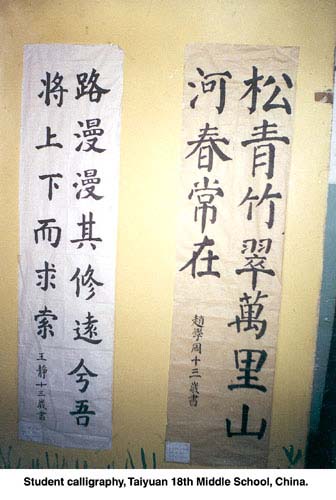 松青竹翠萬里山
河春常在
趙學周十三歲書
路漫漫其修遠兮吾
將上下而求索
王靜十三歲書
Student calligraphy, Taiyuan 18th Middle School, China.